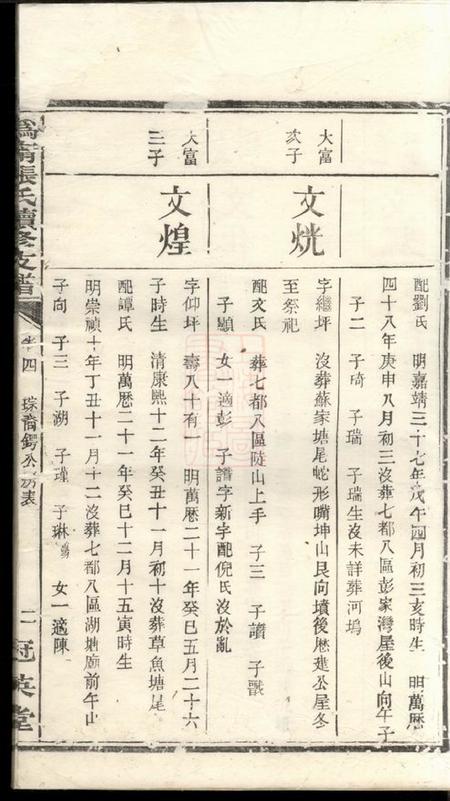 配劉氏 明嘉靖三十七年戊午四月初三亥時生 明萬厯
四十八年庚申八月初三沒葬七都八區彭家灣屋後山向午子
子二 子琦 子瑞 子瑞生沒未詳葬河塢
大富
次子
文㷇
字繼坪 沒葬蘇家塘尾蛇形嘴坤山艮向墳後厯建公屋冬
至祭祀
配文氏 葬七都八區陡山上手 子三 子讀 子
子顯 女一適彭 子譜字新字配倪氏沒於亂
大富
三子
文煌
字仰坪 壽八十有一 明萬厯二十一年癸巳五月二十六
子時生 清康熙十二年癸丑十一月初十沒葬草魚塘尾
配譚氏 明萬厯二十一年癸巳十二月十五寅時生
明崇禎十年丁丑十一月十二沒葬七都八區湖塘廟前午山
子向 子三 子湖 子瑾 子琳 女一適陳
張氏續修支譜
卷四 琮喬公房表
二 冠英堂